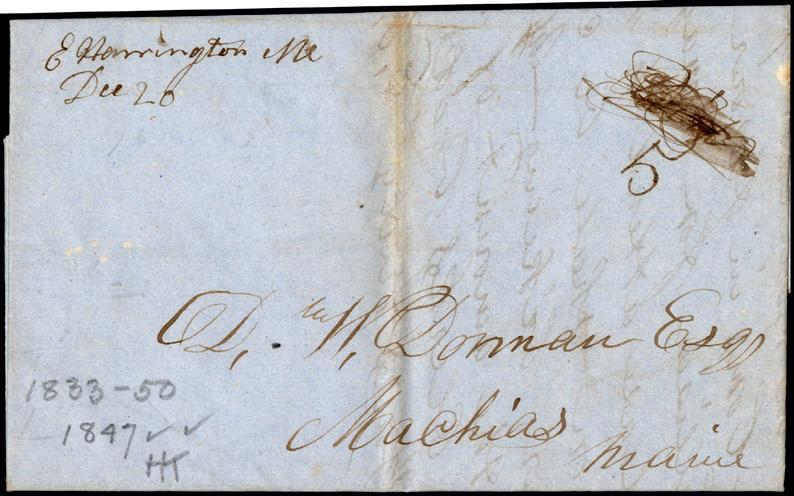 E Harrington Me
Dec 20
5
D. W. Dorman Esqr
Machias
Maine
1833-50
1847 ✓ ✓
HT